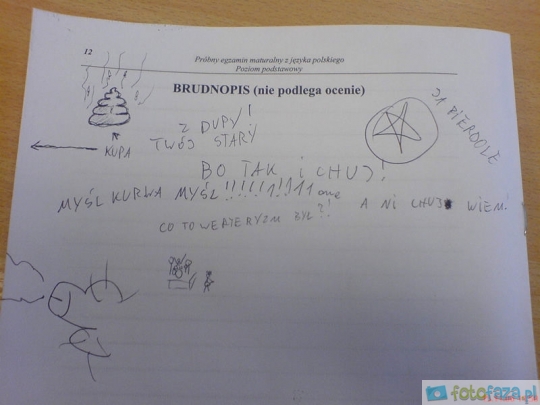 12
Próbny egzamin maturalny z języka polskiego
Poziom podstawowy
BRUDNOPIS (nie podlega ocenie)
KUPA
Z DUPY!
TWÓJ STARY
JA PIERDOLE
BO TAK I CHUJ!
MYŚL KURWA MYŚL !!!!!1!1!11 one
A NI CHUJ WIEM!
CO TO WERTERYZM BYŁ?!
fotofaza.pl